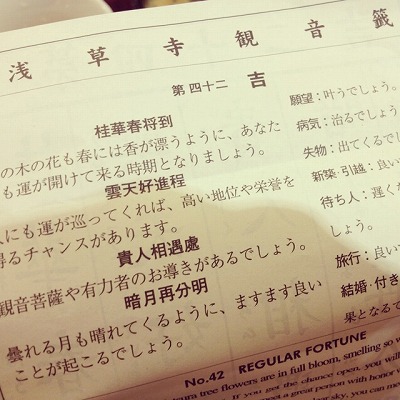 浅草寺観音籤
第四十二 吉
桂華春将到
の木の花も春には香が漂うように、あなた
も運が開けて来る時期となりましょう。
雲天好進程
にも運が巡ってくれば、高い地位や栄誉を
得るチャンスがあります。
貴人相遇處
観音菩薩や有力者のお導きがあるでしょう。
暗月再分明
曇れる月も晴れてくるように、ますます良い
ことが起こるでしょう。
願望:叶うでしょう。
病気:治るでしょう
失物:出てくるでし
新築·引越:良い
待ち人:遅く
しょう。
旅行:良い
結婚·付き
果となるで
No.42 REGULAR FORTUNE
tree flowers are in full bloom, smelling so
If you get the chance open, you will
a great person with honor
sky, you can